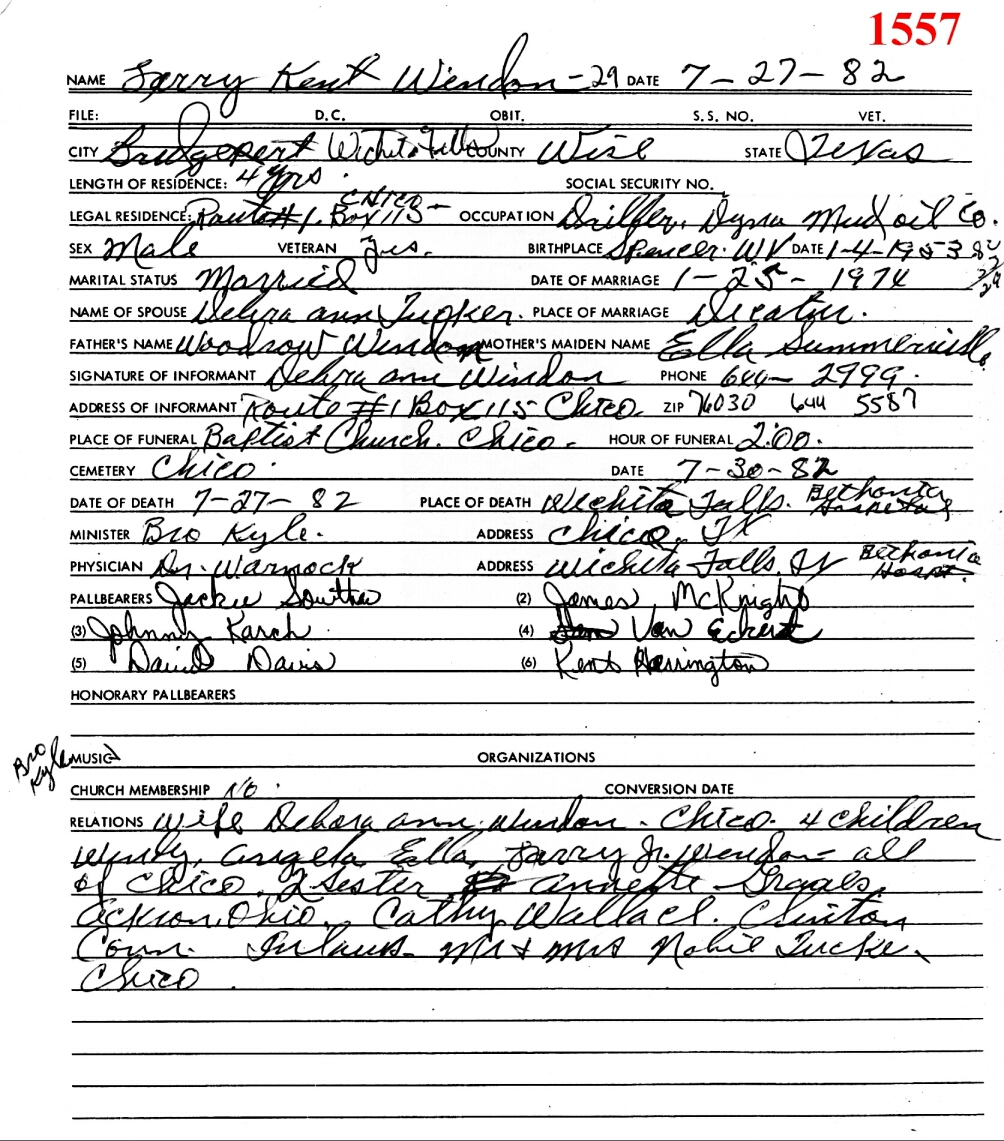 1557
NAME Larry Kent Windon - 29 DATE 7-27-82
FILE: D.C. OBIT. S.S. NO. VET.
CITY Bridgeport Wichita Falls COUNTY Wise STATE Texas
LENGTH OF RESIDENCE: 4 yrs. SOCIAL SECURITY NO.
LEGAL RESIDENCE: Route #1, Box 115 Chico - OCCUPATION Driller, Dyna Mud oil Co.
SEX Male VETERAN Yes. BIRTHPLACE Spencer, WV DATE 1-4-1953 82
29
MARITAL STATUS Married DATE OF MARRIAGE 1-25-1974
NAME OF SPOUSE Debra ann Tucker. PLACE OF MARRIAGE Decatur.
FATHER'S NAME Woodrow Windon MOTHER'S MAIDEN NAME Ella Summerville
SIGNATURE OF INFORMANT Debra ann Windon PHONE 644-2999.
ADDRESS OF INFORMANT Route #1 Box 115 Chico. ZIP 76030 644 5587
PLACE OF FUNERAL Baptist Church. Chico. HOUR OF FUNERAL 2:00.
CEMETERY Chico. DATE 7-30-82
DATE OF DEATH 7-27-82 PLACE OF DEATH Wichita Falls. Bethania Hospital
MINISTER Bro Kyle. ADDRESS Chico, TX
PHYSICIAN Dr. Warnock ADDRESS Wichita Falls, Bethania Hospt.
PALLBEARERS Jackie (2) James McKnight
(3) Johnny Karch (4) Van Eckert
(5) David Davis (6) Kent Harrington
HONORARY PALLBEARERS
Bro Kyle MUSIC ORGANIZATIONS
CHURCH MEMBERSHIP No. CONVERSION DATE
RELATIONS Wife Debora ann Windon. Chico. 4 children
Windy, Angela, Ella, Larry Jr. Windon - all
of Chico. 2 Sester Annette
Ohio. Cathy Wallace. Clinton
Conn. Inlaws - Mr & Mrs Tucke.
Chico.